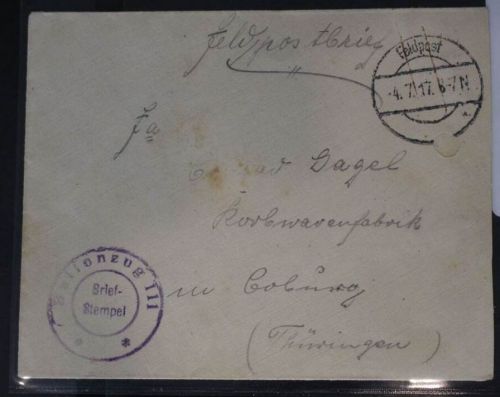 Feldpostbrief
Feldpost
-4.7.17. 6-7 N
Fa
Gagel
Korbwarenfabrik
in Coburg
(Thüringen)
Ballonzug 111
Brief-
Stempel